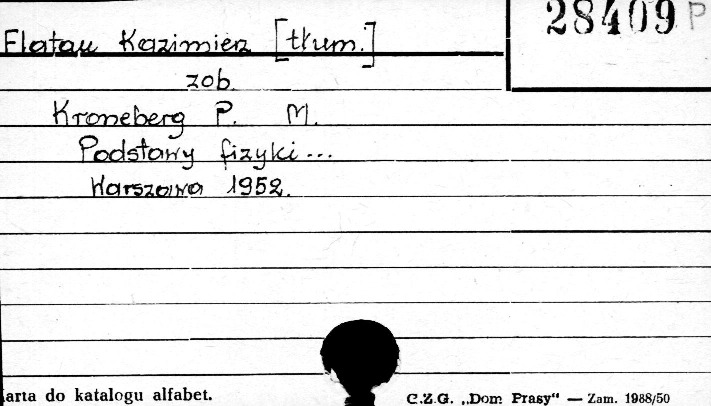 28409 P
Flatau Kazimierz [tłum.]
zob.
Kroneberg P. M.
Podstawy fizyki...
Warszawa 1952.
arta do katalogu alfabet.
C.Z.G. „Dom Prasy" — Zam. 1988/50